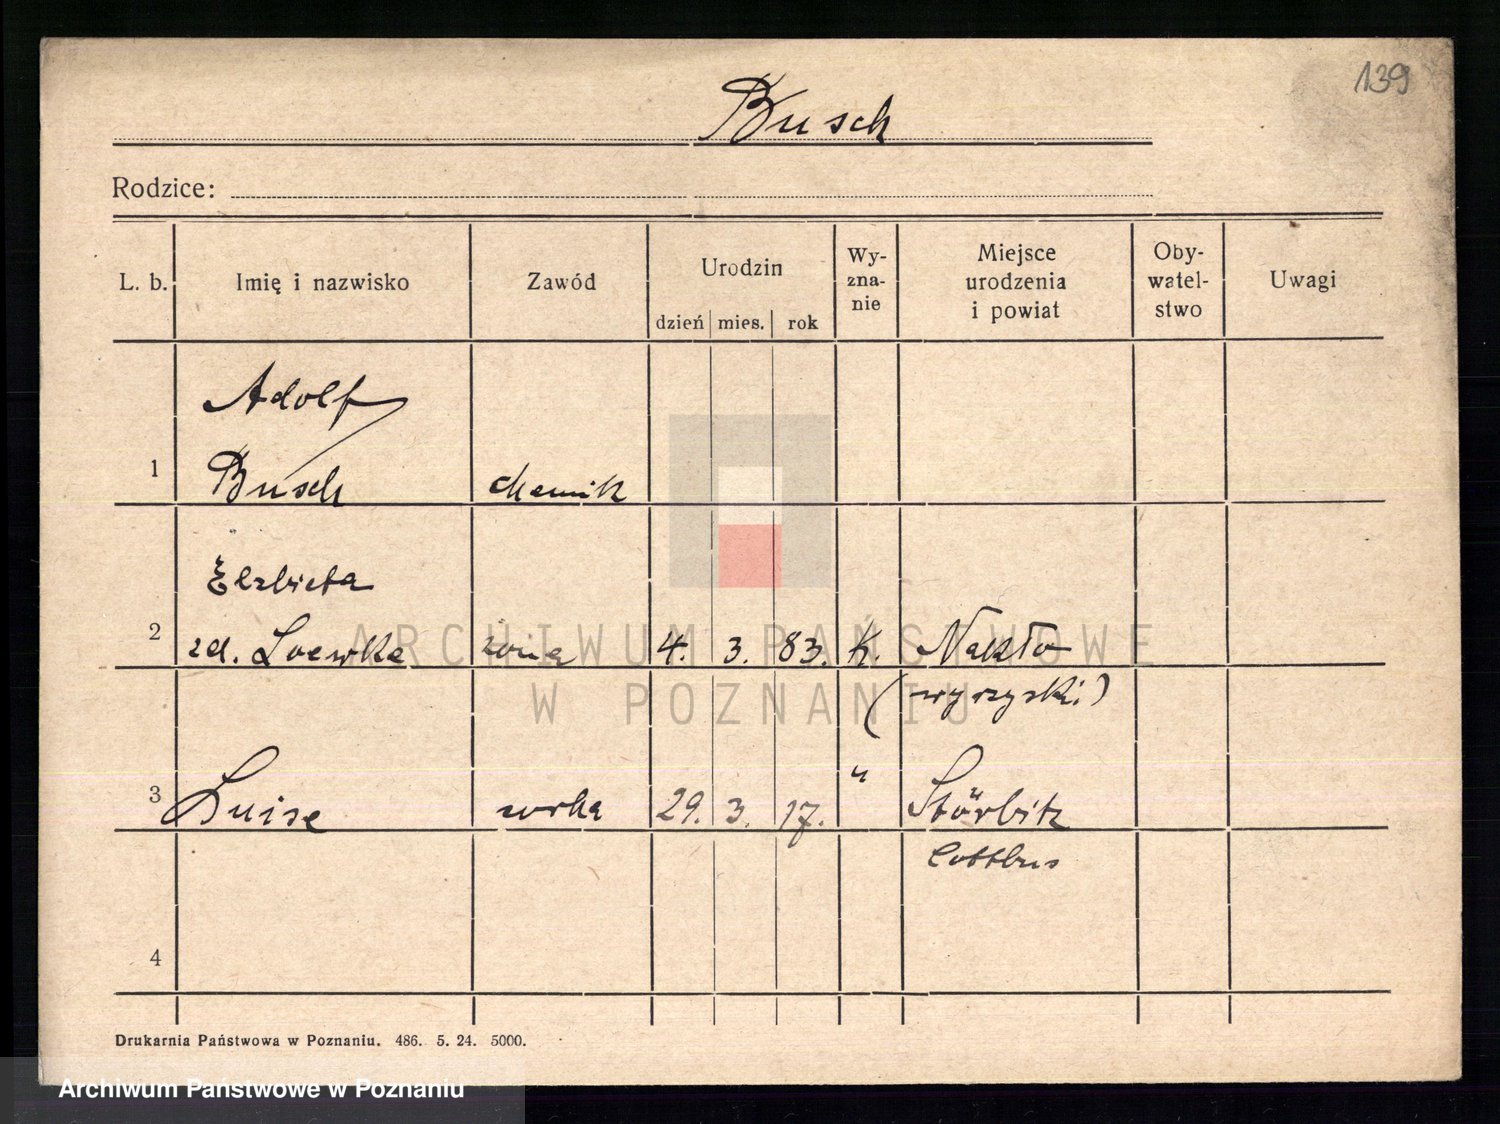 139
Busch
Rodzice:
L. b. Imię i nazwisko Zawód Urodzin dzień mies. rok Wy-zna-nie Miejsce urodzenia i powiat Oby-watel-stwo Uwagi
Adolf
1 Busch chemik
Elzbieta
2 zd. Loewke żona 4. 3. 83. k. Nakło
(wyrzyski)
3 Luise corka 29. 3. 17. " Störbitz
Cottbus
4
ARCHIWUM PAŃSTWOWE
W POZNANIU
Drukarnia Państwowa w Poznaniu. 486. 5. 24. 5000.
Archiwum Państwowe w Poznaniu